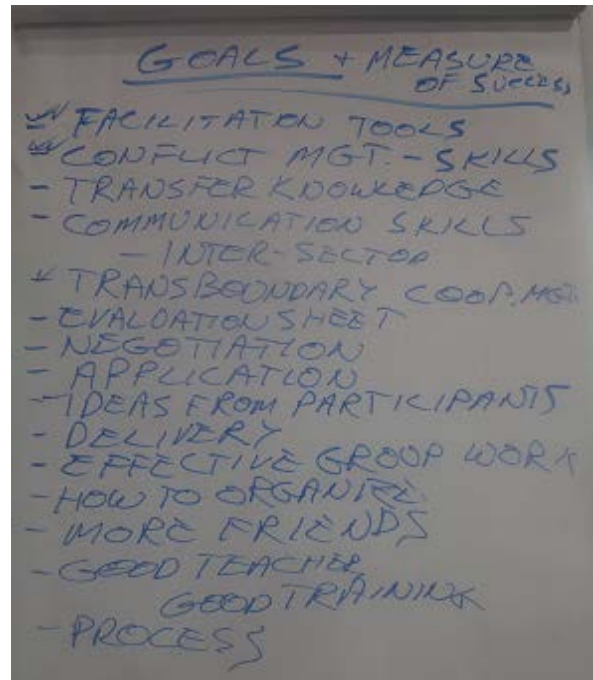 GOALS + MEASURE
OF SUCCESS
- FACILITATION TOOLS
- CONFLICT MGT. - SKILLS
- TRANSFER KNOWLEDGE
- COMMUNICATION SKILLS
- INTER-SECTOR
- TRANSBOUNDARY COOP. MGT.
- EVALUATION SHEET
- NEGOTIATION
- APPLICATION
- IDEAS FROM PARTICIPANTS
- DELIVERY
- EFFECTIVE GROUP WORK
- HOW TO ORGANIZE
- MORE FRIENDS
- GOOD TEACHER
GOOD TRAINING
- PROCESS